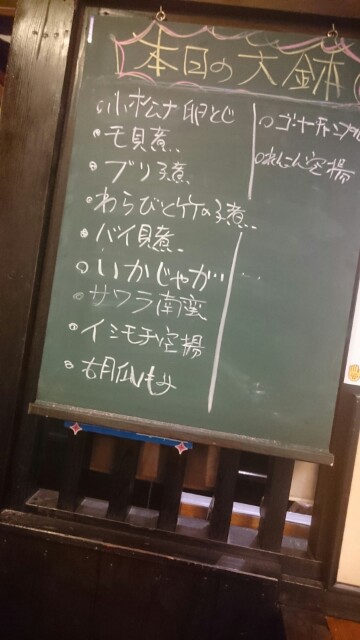 本日の大鉢
小松ナ卵とじ
モ貝煮
ブリ子煮
わらびと竹の子煮
バイ貝煮
いかじゃが
サワラ南蛮
イシモチ空揚
胡瓜もみ
ゴーヤーチャンプル
れんこん空揚